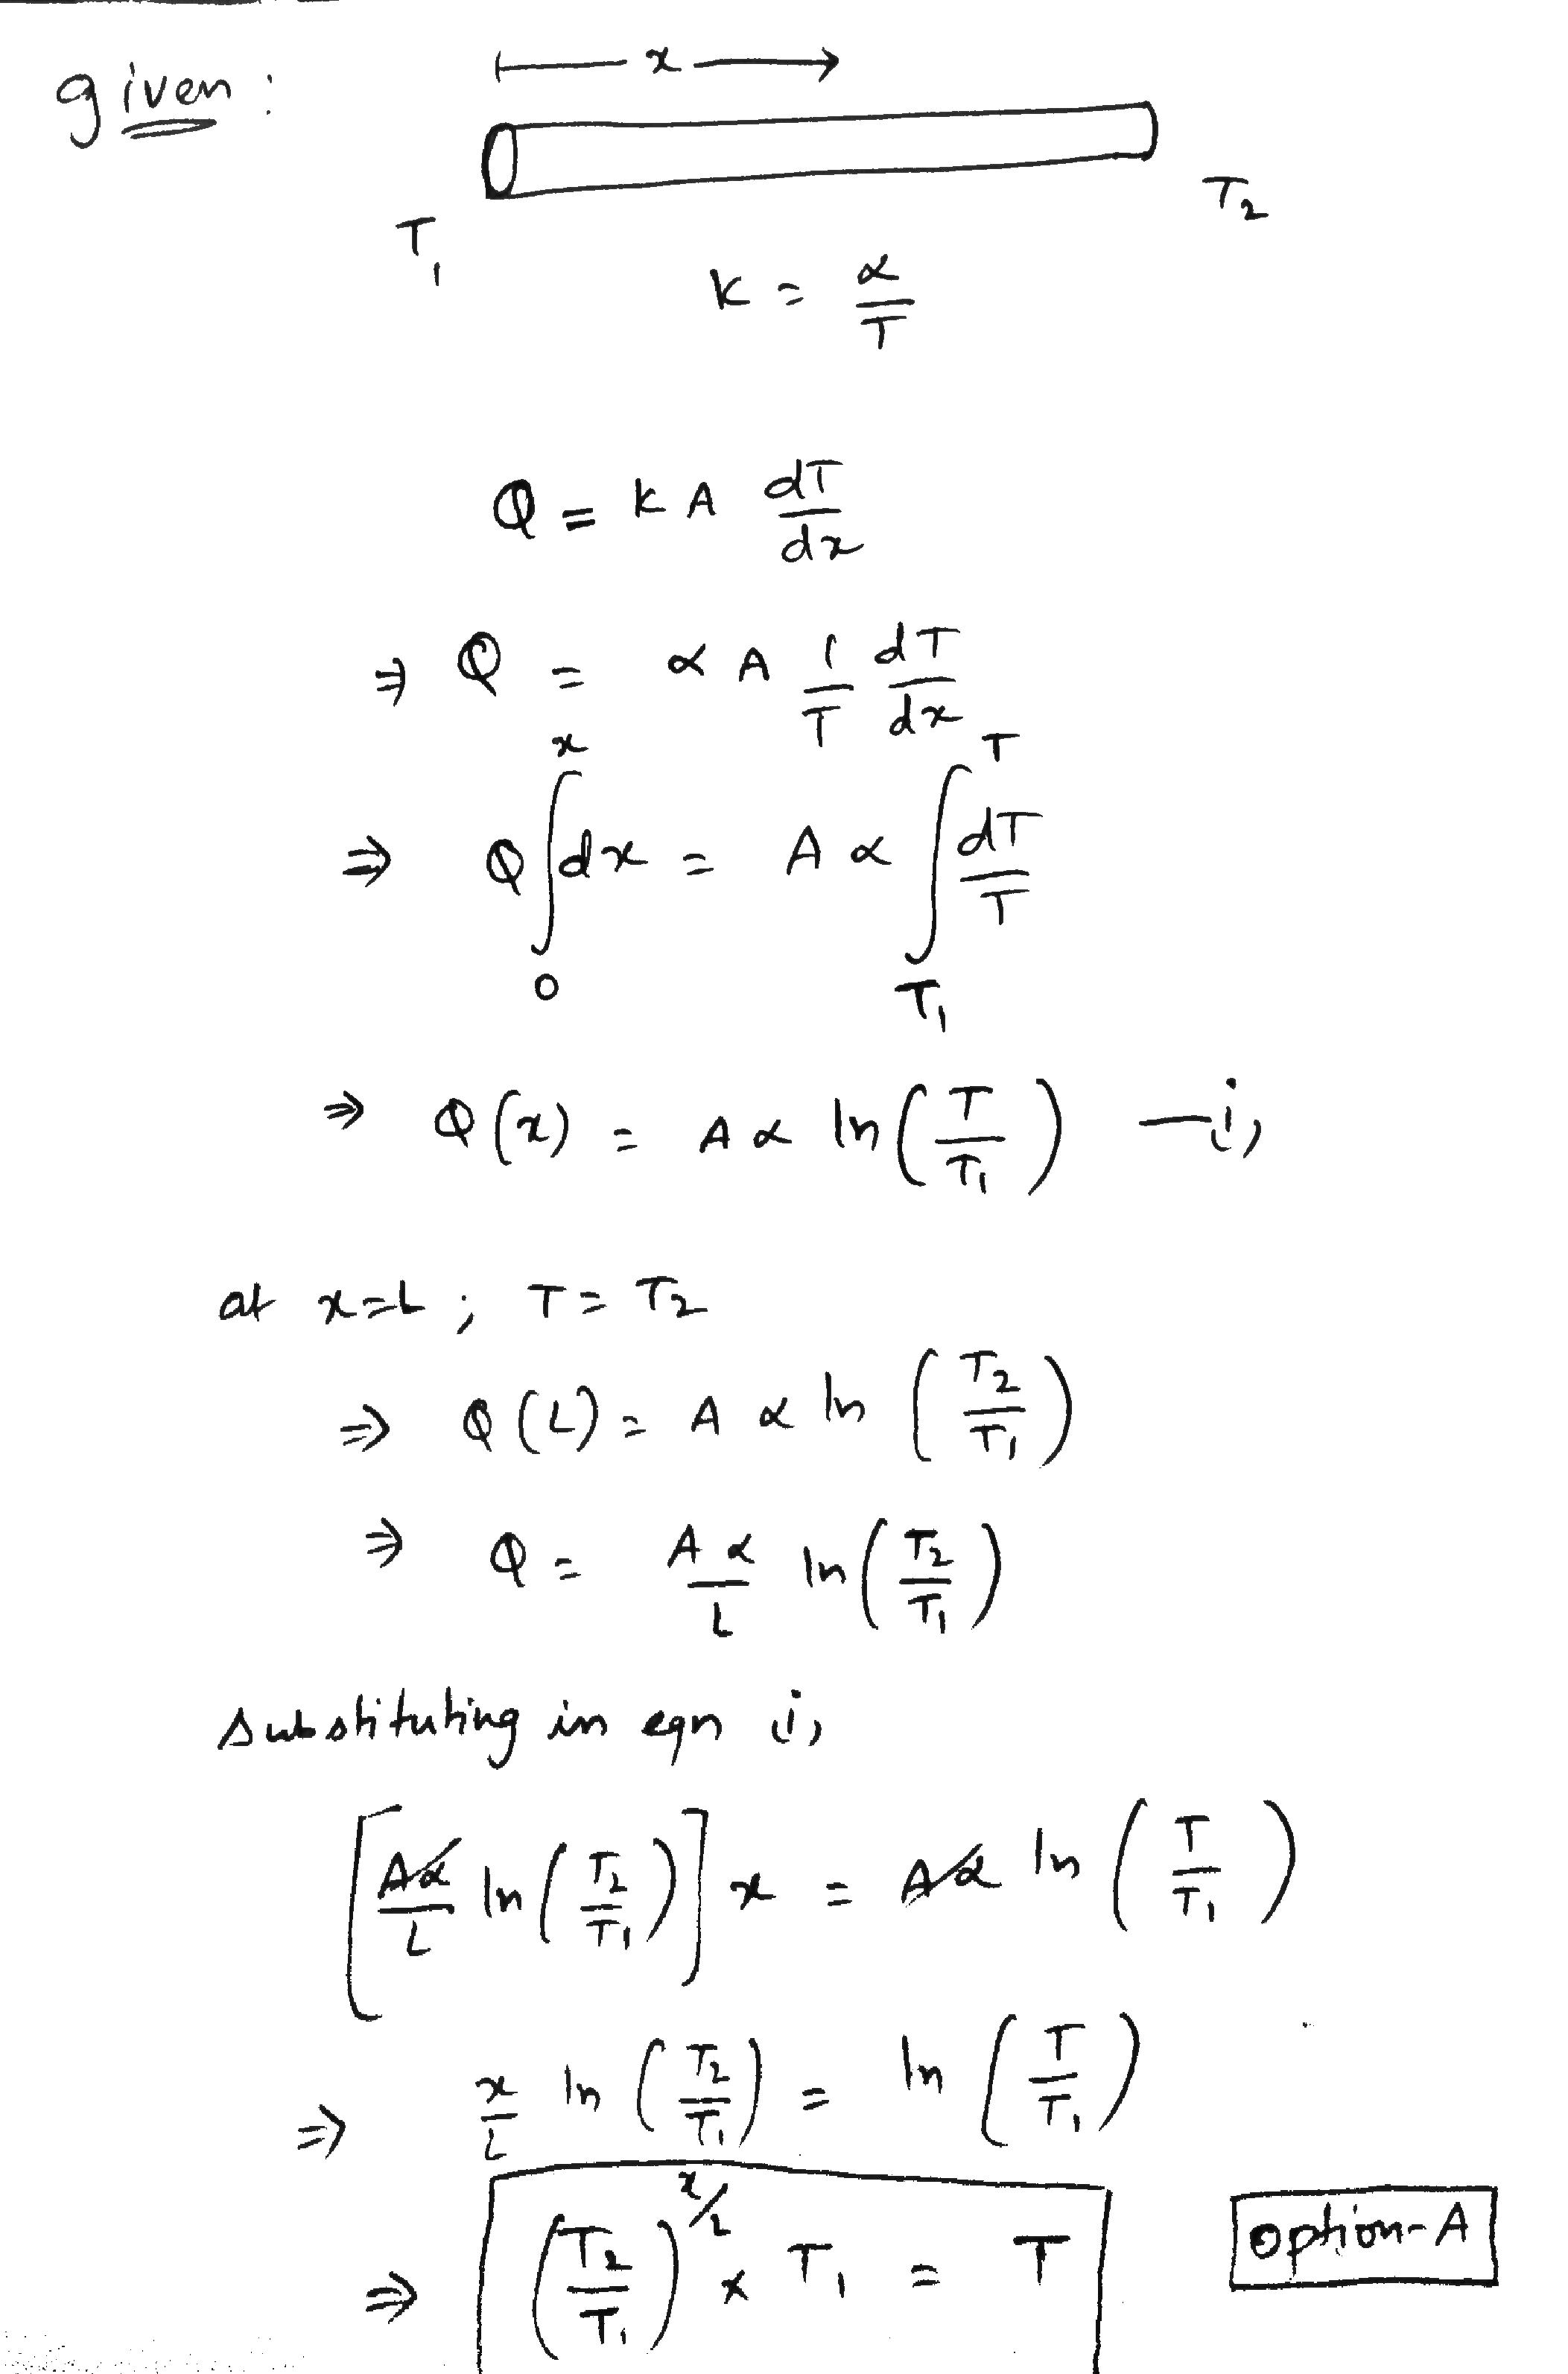 given :
x
T₁ T₂
K = α/T
Q = K A dT/dx
⇒ Q = α A 1/T dT/dx
⇒ Q ∫₀ˣ dx = A α ∫_{T₁}^{T} dT/T
⇒ Q (x) = A α ln (T/T₁) — i,
at x=L ; T = T₂
⇒ Q (L) = A α ln (T₂/T₁)
⇒ Q = Aα/L ln (T₂/T₁)
substituting in eqn i,
[Aα/L ln (T₂/T₁)] x = Aα ln (T/T₁)
⇒ x/L ln (T₂/T₁) = ln (T/T₁)
⇒ (T₂/T₁)^{x/L} × T₁ = T
option-A